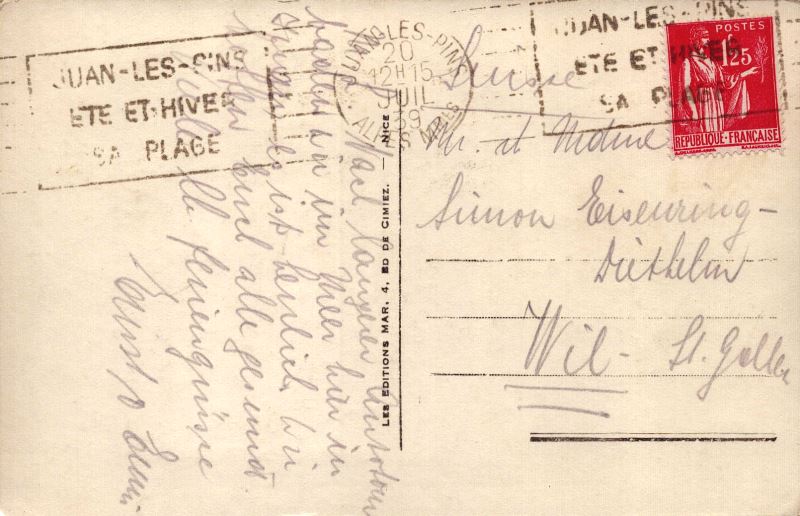 JUAN-LES-PINS
ETE ET HIVER
SA PLAGE
JUAN-LES-PINS
20
12H15
JUIL
39
ALPES-MMES
JUAN-LES-PINS
ETE ET HIVER
SA PLAGE
POSTES
1F25
REPUBLIQUE-FRANÇAISE
Suisse
Mr. et Mdme
Simon Eisenring-
Diethelm
Wil - St. Gallen
LES EDITIONS MAR, 4, BD DE CIMIEZ. — NICE
Nach langer Autotour
baden wir im Meer hier in
es ist herrlich. Wir
hoffen Euch alle gesund.
Feriengrüsse
Ernst &